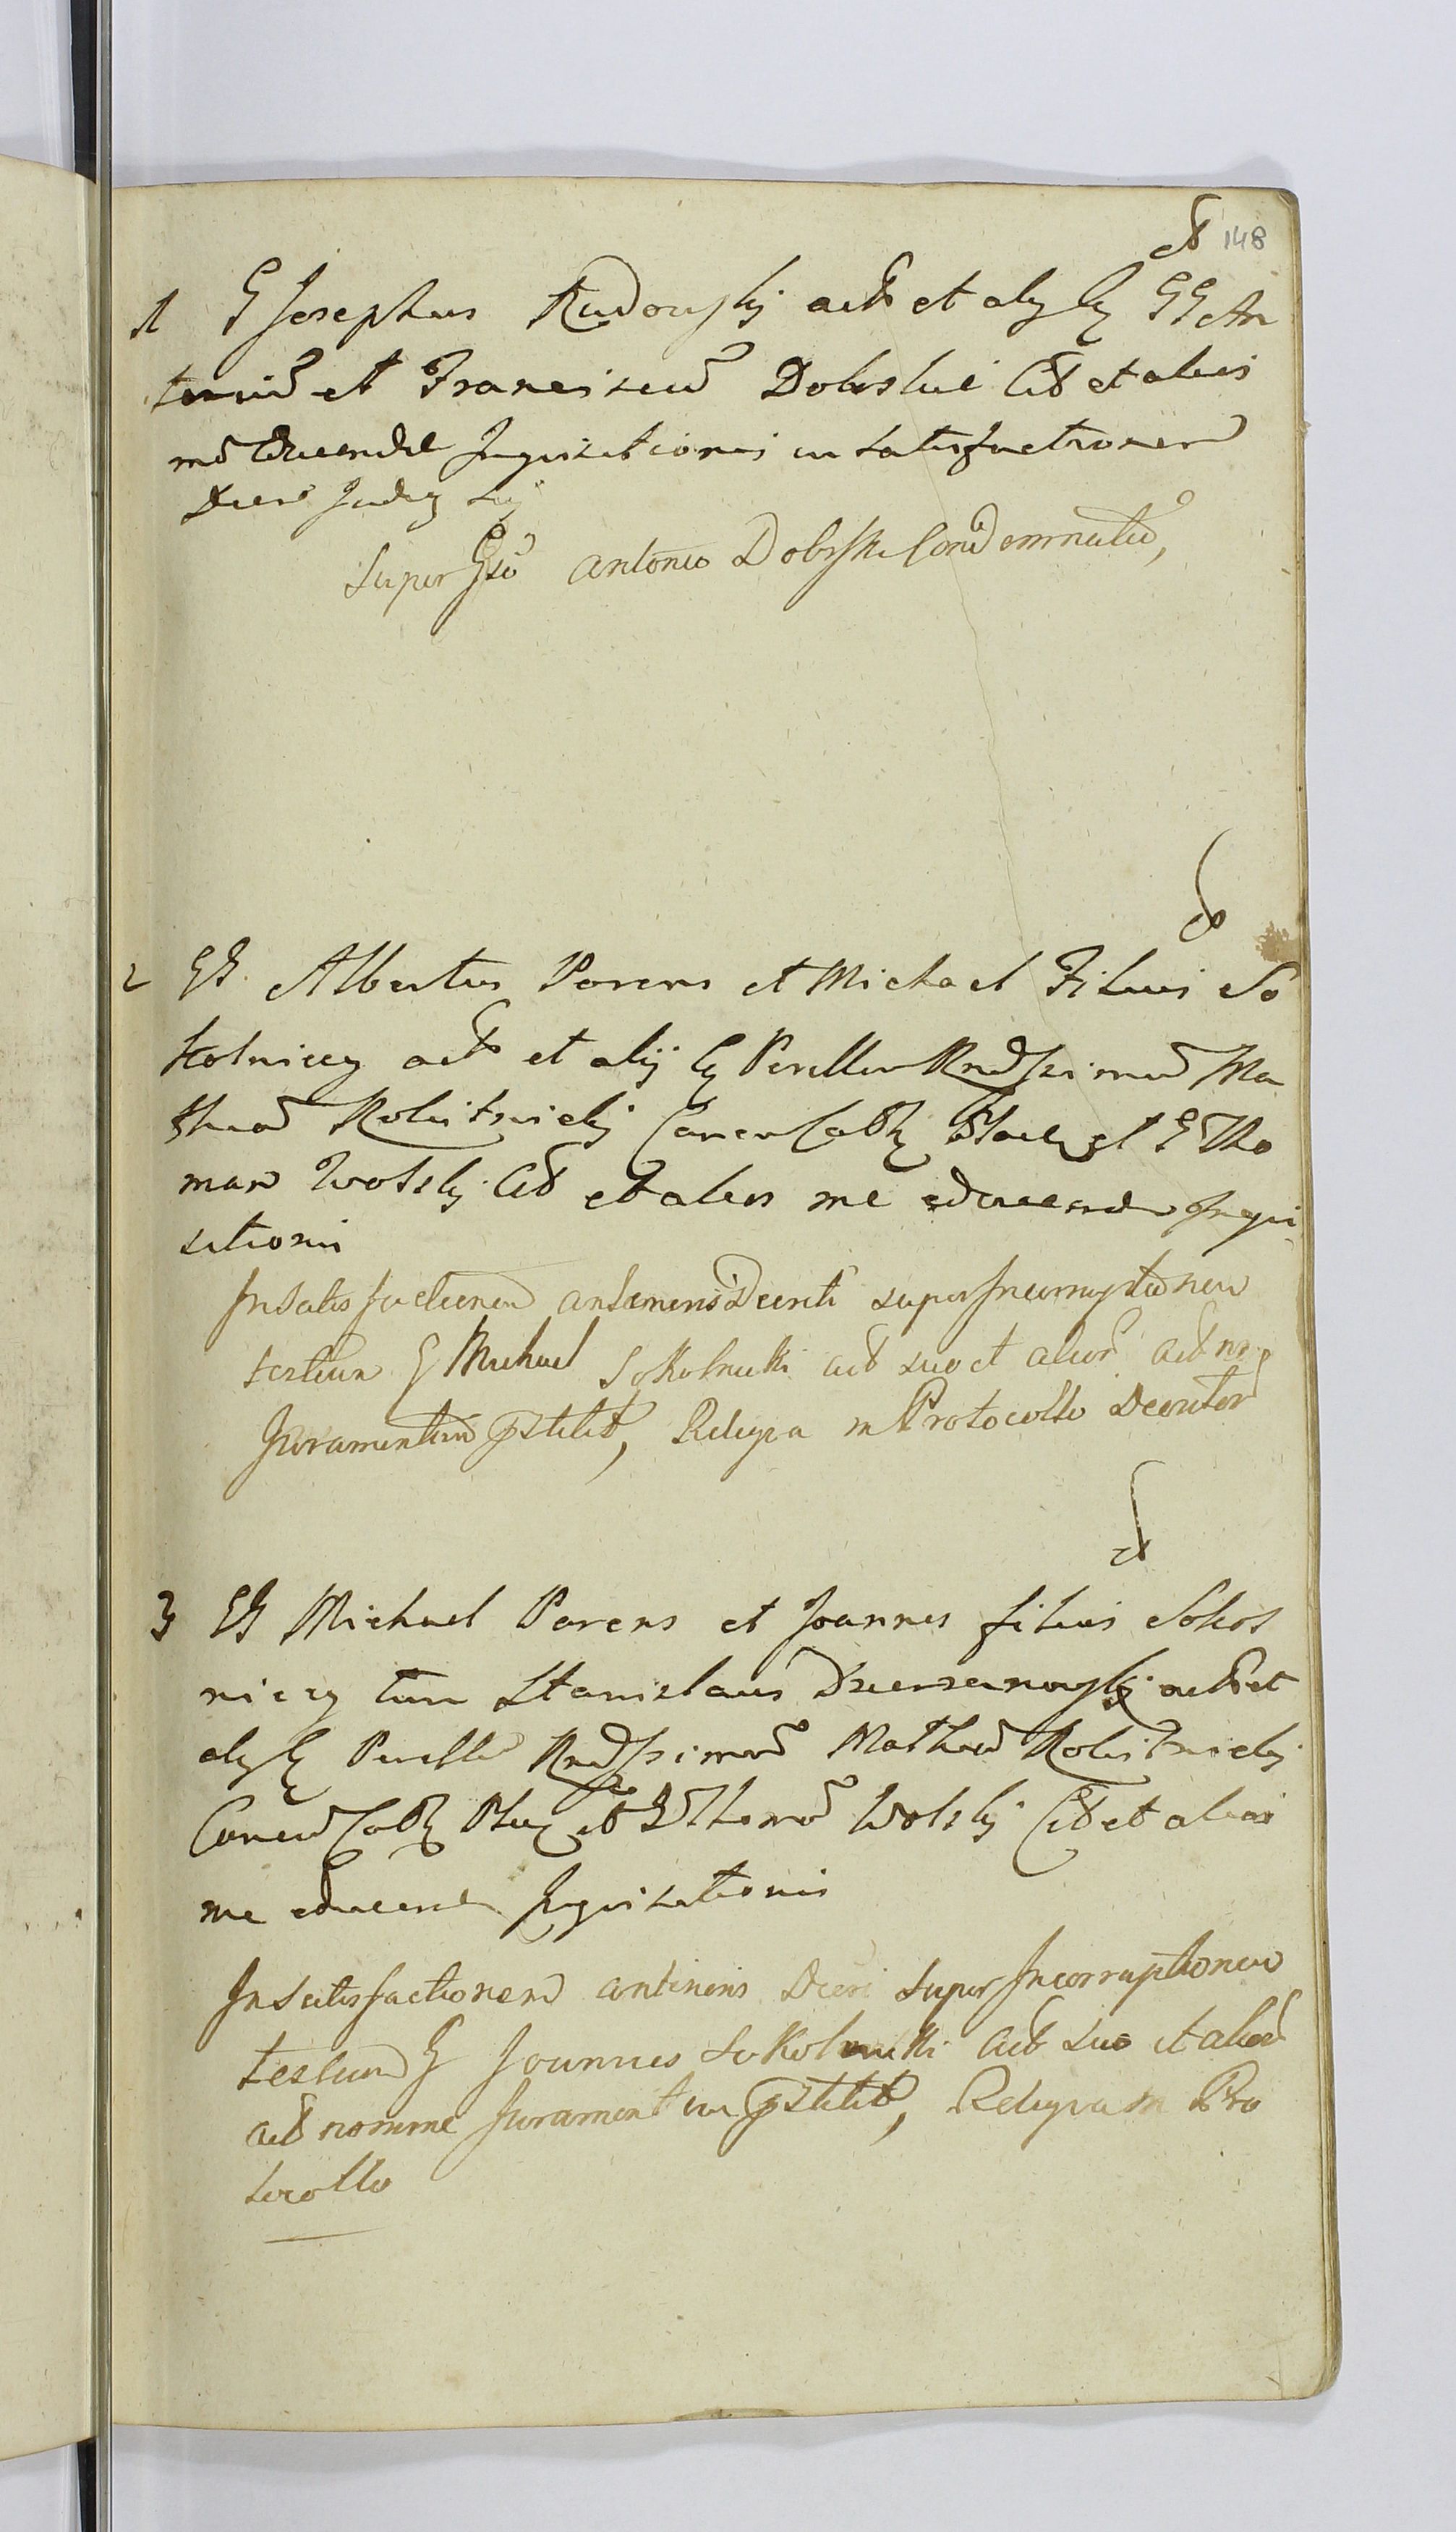 148
1 G Josephus Rudowskj act et alÿ Cz GG An
toniū et Franciscū Dobrski Cit et alios
me educendae Inquisitionis in satisfactionem
Decri Judcy sui
super Gso Antonio Dobrski Condemnatū,
2 GG Albertus Parens et Michael Filius So
kolniccy act et alij Cz Perillū Rndssimū Ma
theū Kobi Cancū Cath et G Tho
mam Wolskj Cit et alios me educende Inqui
sitionis
In satisfactionem anterioris Decreti super Incorruptionem
testium G Michael Sokolnicki act suo et alior act no
Juramentum pstitit, Reliqua in Protocollo Decretor
3 GG Michael Parens et Joannes filius Sokol
niccy tum Stanislaus act et
alÿ Cz Perillū Rndssimū Matheū Kobi
Cancū Cath et G Thomā Wolskj Cit et alios
me educende Inquisitionis
In satisfactionem anterioris Decri super Incorruptionem
testium G Joannes Sokolnicki act suo et alior
act nomine Juramentum pstitit, Reliqua in Pro
tocollo